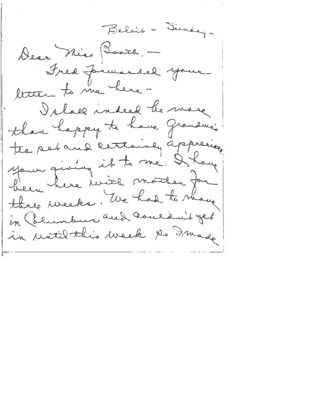 Beloit - Sunday -
Dear Miss Booth, -
Fred forwarded your
letter to me here -
I shall indeed be more
than happy to have Grandma's
tea set and certainly appreciate
your giving it to me. I have
been here with mother for
three weeks. We had to move
in Columbus and couldn't get
in until this week so I made